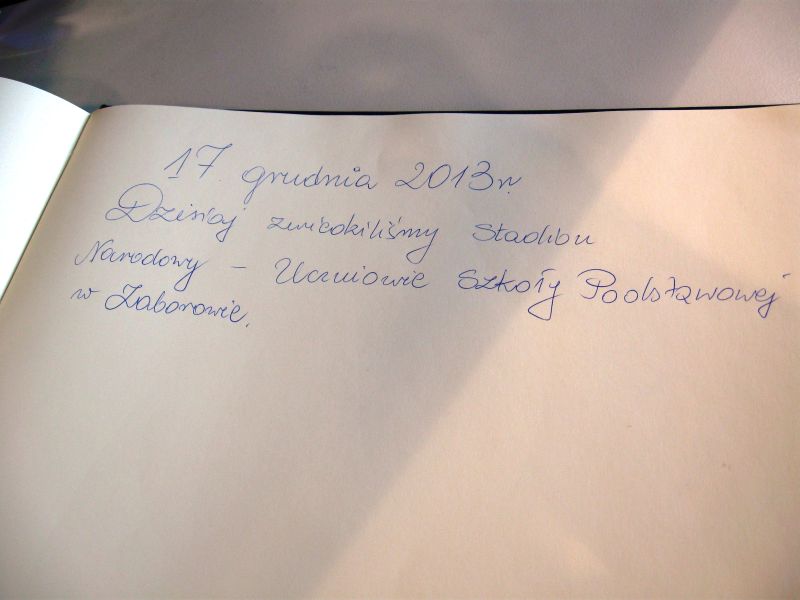 17. grudnia 2013r.
Dzisiaj zwiedziliśmy Stadion
Narodowy – Uczniowie Szkoły Podstawowej
w Zaborowie.